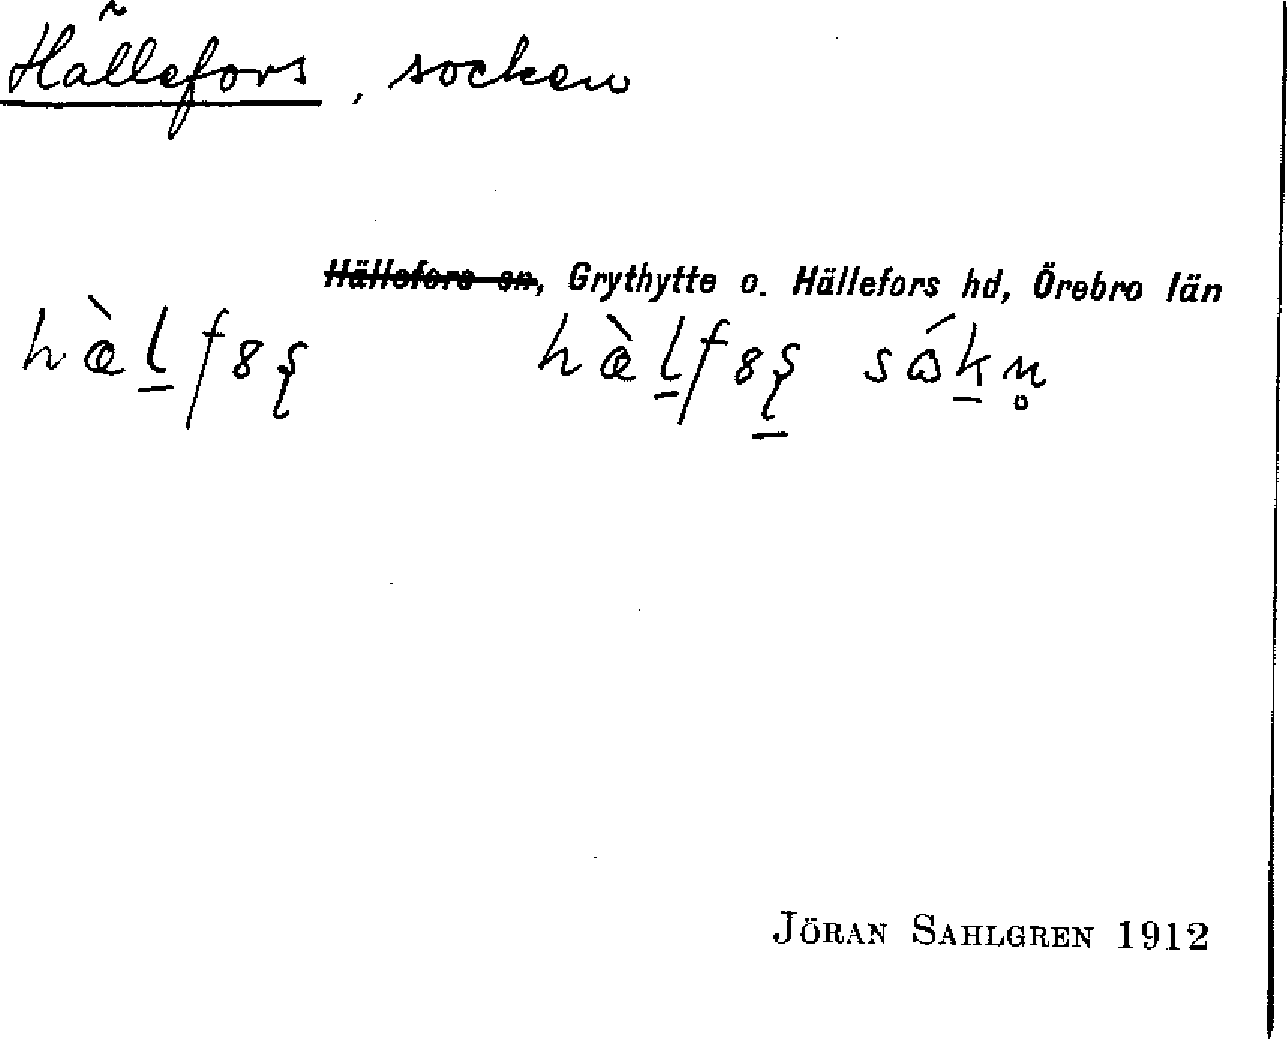 Hällefors, socken
Hällefors sn, Grythytte o. Hällefors hd, Örebro län
hæ̀l̠f8ş hæ̀l̠f8ş̠ sɷ́k̠n̥
JÖRAN SAHLGREN 1912